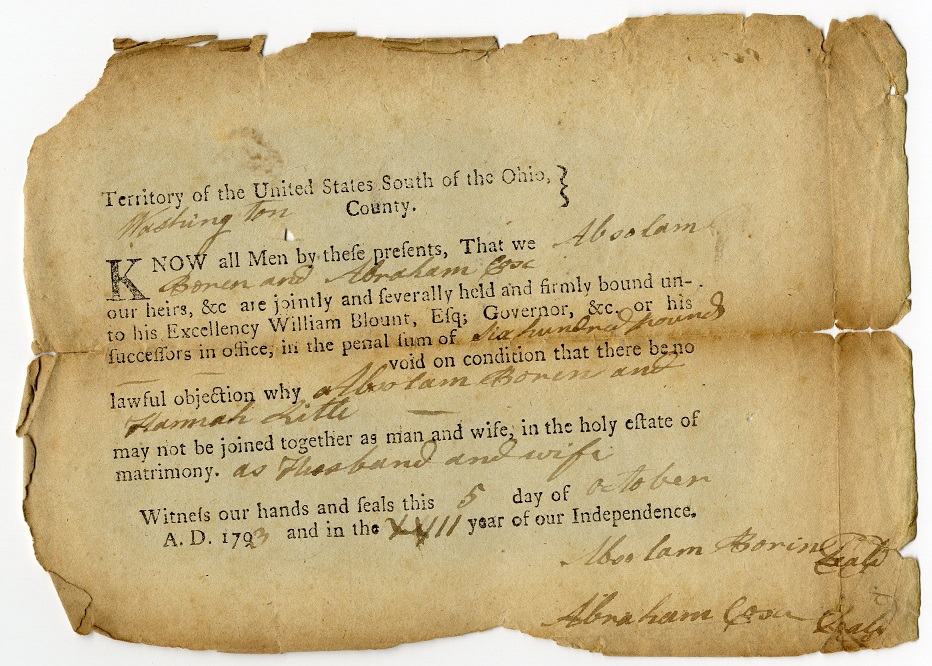 Territory of the United States South of the Ohio, }
Washington County.
KNOW all Men by theſe preſents, That we Absolam
Boren and Abraham Cox
our heirs, &c are jointly and ſeverally held and firmly bound un-
to his Excellency William Blount, Eſq; Governor, &c. or his
ſucceſſors in office, in the penal ſum of six hundred pounds
void on condition that there be no
lawful objection why Absolam Boren and
Hannah Little
may not be joined together as man and wife, in the holy eſtate of
matrimony. as Husband and wife
Witneſs our hands and ſeals this 5 day of october
A. D. 1793 and in the XVIII year of our Independence.
Absolam Borin Seal
Abraham Cox Seal